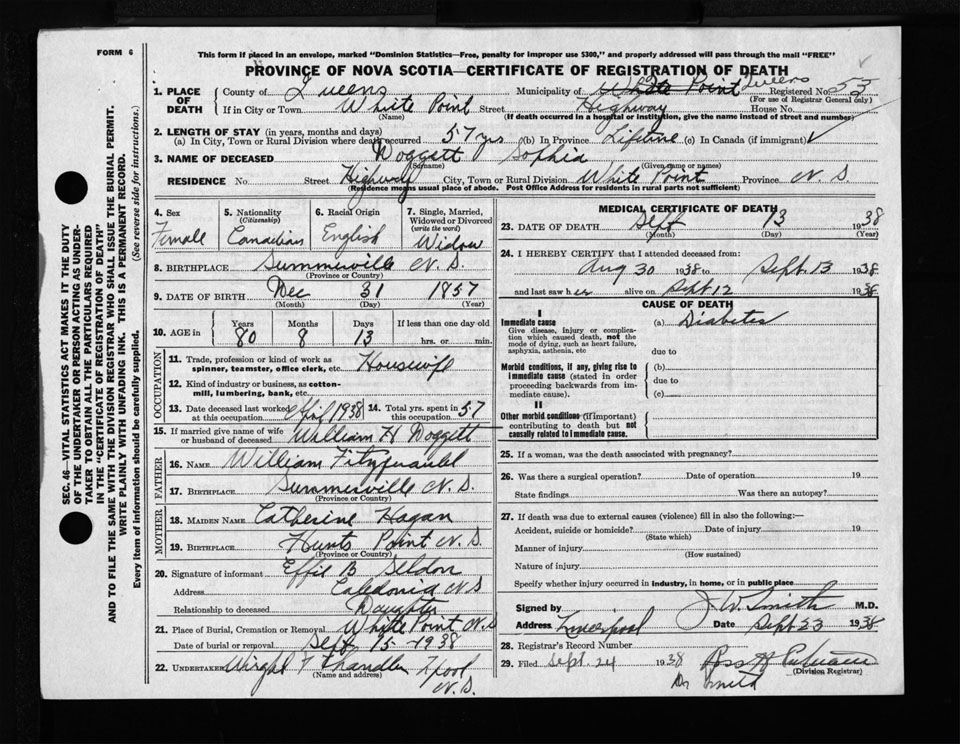 FORM 6
This form if placed in an envelope, marked "Dominion Statistics—Free, penalty for improper use $300," and properly addressed will pass through the mail "FREE"
PROVINCE OF NOVA SCOTIA—CERTIFICATE OF REGISTRATION OF DEATH
1. PLACE OF DEATH County of Queens Municipality of White Point Queens Registered No. 53
(For use of Registrar General only)
If in City or Town White Point Street Highway House No.
(Name) (If death occurred in a hospital or institution, give the name instead of street and number)
2. LENGTH OF STAY (in years, months and days)
(a) In City, Town or Rural Division where death occurred 57 yrs (b) In Province Lifetime (c) In Canada (if immigrant) ✓
3. NAME OF DECEASED Doggett Sophia
(Surname) (Given name or names)
RESIDENCE No. Street Highway City, Town or Rural Division White Point Province N S
(Residence means usual place of abode. Post Office Address for residents in rural parts not sufficient)
4. Sex Female
5. Nationality (Citizenship) Canadian
6. Racial Origin English
7. Single, Married, Widowed or Divorced (write the word) Widow
8. BIRTHPLACE Summerville N. S.
(Province or Country)
9. DATE OF BIRTH Dec 31 1857
(Month) (Day) (Year)
10. AGE in Years 80 Months 8 Days 13 If less than one day old hrs. or min.
OCCUPATION
11. Trade, profession or kind of work as spinner, teamster, office clerk, etc. Housewife
12. Kind of industry or business, as cotton-mill, lumbering, bank, etc.
13. Date deceased last worked at this occupation April 1938 14. Total yrs. spent in this occupation 57
15. If married give name of wife or husband of deceased William H Doggett
FATHER
16. NAME William
17. BIRTHPLACE Summerville N. S.
(Province or Country)
MOTHER
18. MAIDEN NAME Catherine Hagan
19. BIRTHPLACE Hunts Point N. S.
(Province or Country)
20. Signature of informant Effie B Seldon
Address Caledonia N S
Relationship to deceased Daughter
21. Place of Burial, Cremation or Removal White Point N. S
Date of burial or removal Sept 15 - 1938
22. UNDERTAKER Wright T Chandler L'pool N. S.
(Name and address)
MEDICAL CERTIFICATE OF DEATH
23. DATE OF DEATH Sept 13 1938
(Month) (Day) (Year)
24. I HEREBY CERTIFY that I attended deceased from:
Aug 30 1938 to Sept. 13 1938
and last saw her alive on Sept 12 1938
CAUSE OF DEATH
I
Immediate cause (a) Diabetes
Give disease, injury or complication which caused death, not the mode of dying, such as heart failure, asphyxia, asthenia, etc due to
Morbid conditions, if any, giving rise to immediate cause (stated in order proceeding backwards from immediate cause). (b)
due to
(c)
II
Other morbid conditions (if important) contributing to death but not causally related to immediate cause.
25. If a woman, was the death associated with pregnancy?
26. Was there a surgical operation? Date of operation 19
State findings Was there an autopsy?
27. If death was due to external causes (violence) fill in also the following:—
Accident, suicide or homicide? Date of injury 19
(State which)
Manner of injury
(How sustained)
Nature of injury
Specify whether injury occurred in industry, in home, or in public place
Signed by J. W. Smith M.D.
Address Liverpool Date Sept 23 1938
28. Registrar's Record Number
29. Filed Sept. 24 1938
(Division Registrar)
Dr Smith
SEC. 46—VITAL STATISTICS ACT MAKES IT THE DUTY
OF THE UNDERTAKER OR PERSON ACTING AS UNDER-
TAKER TO OBTAIN ALL THE PARTICULARS REQUIRED
IN THE "CERTIFICATE OF REGISTRATION OF DEATH"
AND TO FILE THE SAME WITH THE DIVISION REGISTRAR WHO SHALL ISSUE THE BURIAL PERMIT.
WRITE PLAINLY WITH UNFADING INK. THIS IS A PERMANENT RECORD.
Every item of information should be carefully supplied. (See reverse side for instructions.)